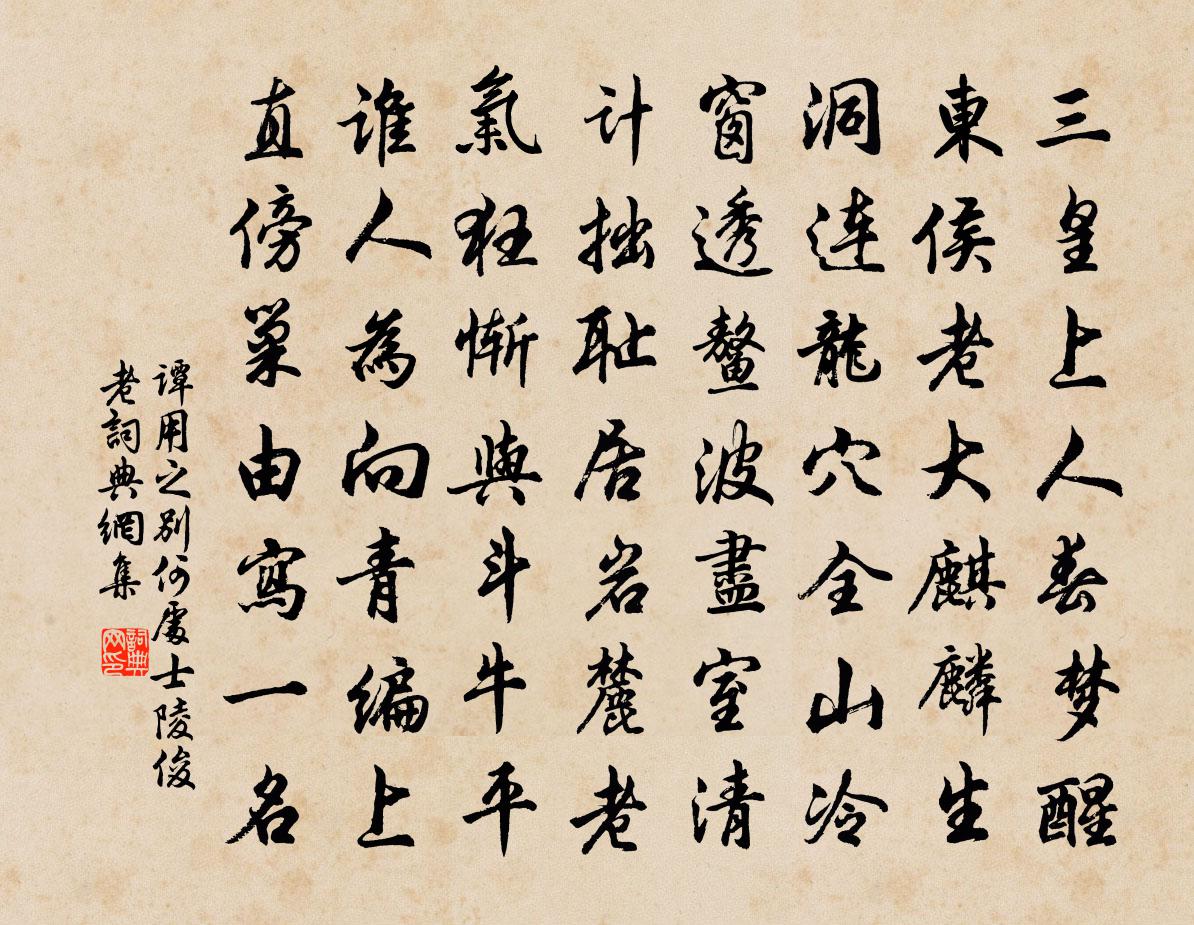 三皇上人春梦醒
東侯老大麒麟生
洞連龍穴全山冷
窗透鰲波盡室清
计拙耻居岩麓老
氣狂惭與斗牛平
谁人為向青编上
直傍巢由寫一名
谭用之别何處士陵俊
老詞典網集
詞典网印